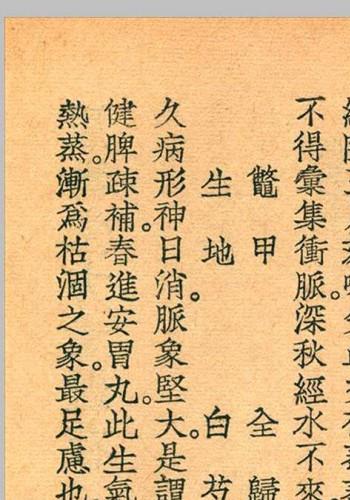 不得彙集衝脈。深秋經水不來
鼈甲　全歸
生地　白芍
久病形神日消。脈象堅大。是謂
健脾疎補。春進安胃丸。此生氣
熱蒸。漸為枯涸之象。最足慮也